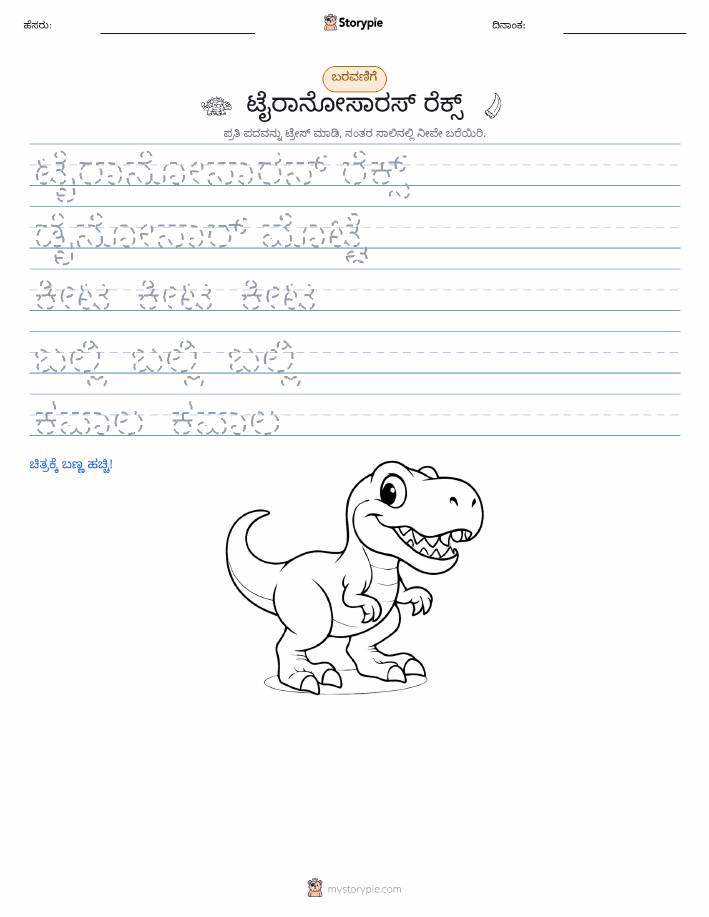 ಹೆಸರು:
Storypie
ದಿನಾಂಕ:
ಬರವಣಿಗೆ
ಟೈರಾನೋಸಾರಸ್ ರೆಕ್ಸ್
ಪ್ರತಿ ಪದವನ್ನು ಟ್ರೇಸ್ ಮಾಡಿ, ನಂತರ ಸಾಲಿನಲ್ಲಿ ನೀವೇ ಬರೆಯಿರಿ.
ಟೈರಾನೋಸಾರಸ್ ರೆಕ್ಸ್
ಡೈನೋಸಾರ್ ಮೊಟ್ಟೆ
ಕೀಟನ ಕೀಟನ ಕೀಟನ
ಬಲ್ಲಿ ಬಲ್ಲಿ ಬಲ್ಲಿ
ಕಪಾಲ ಕಪಾಲ
ಚಿತ್ರಕ್ಕೆ ಬಣ್ಣ ಹಚ್ಚಿ!
mystorypie.com